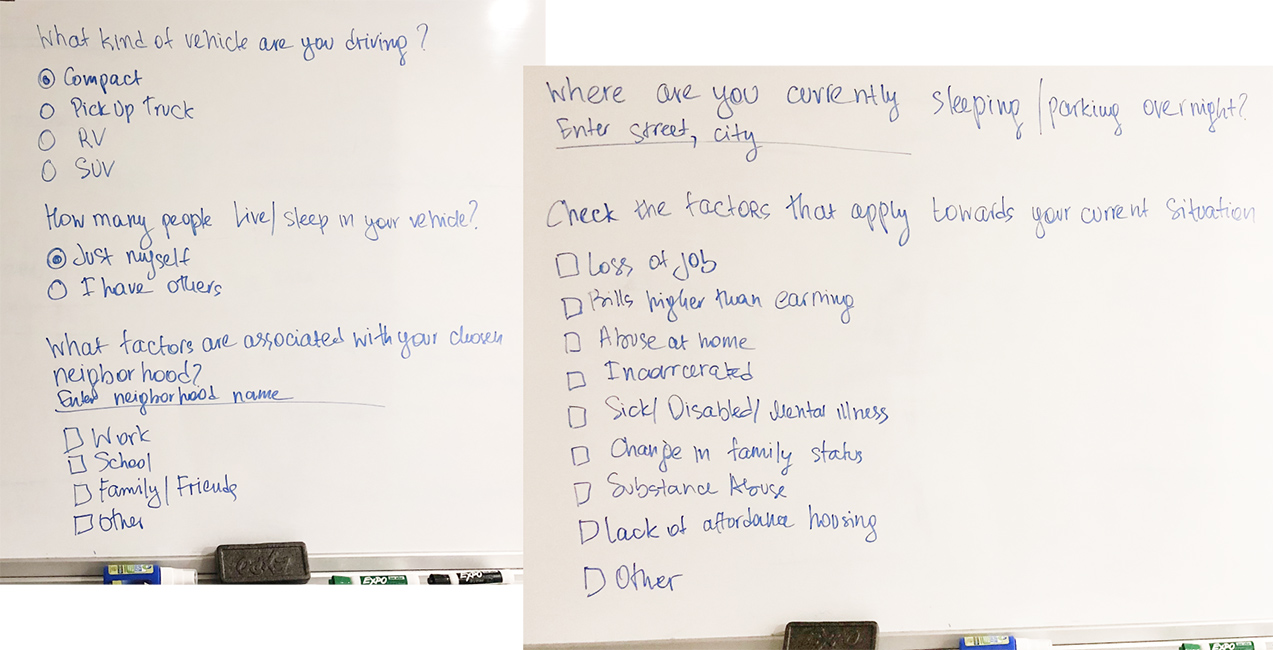 What kind of vehicle are you driving?
Compact
Pick Up Truck
RV
SUV
How many people Live/sleep in your vehicle?
Just myself
I have others
What factors are associated with your chosen
neigborhood?
Enter neigborhood name
Work
School
Family/Friends
Other
EXPO
EXPO
Where are you currently sleeping/parking overnight?
Enter street, city
Check the factors that apply towards your current situation
Loss of job
Bills higher than earning
Abuse at home
Incarrcerated
Sick/Disabled/Mental illness
Change in family status
Substance Abuse
Lack of affordance housing
Other
EXPO